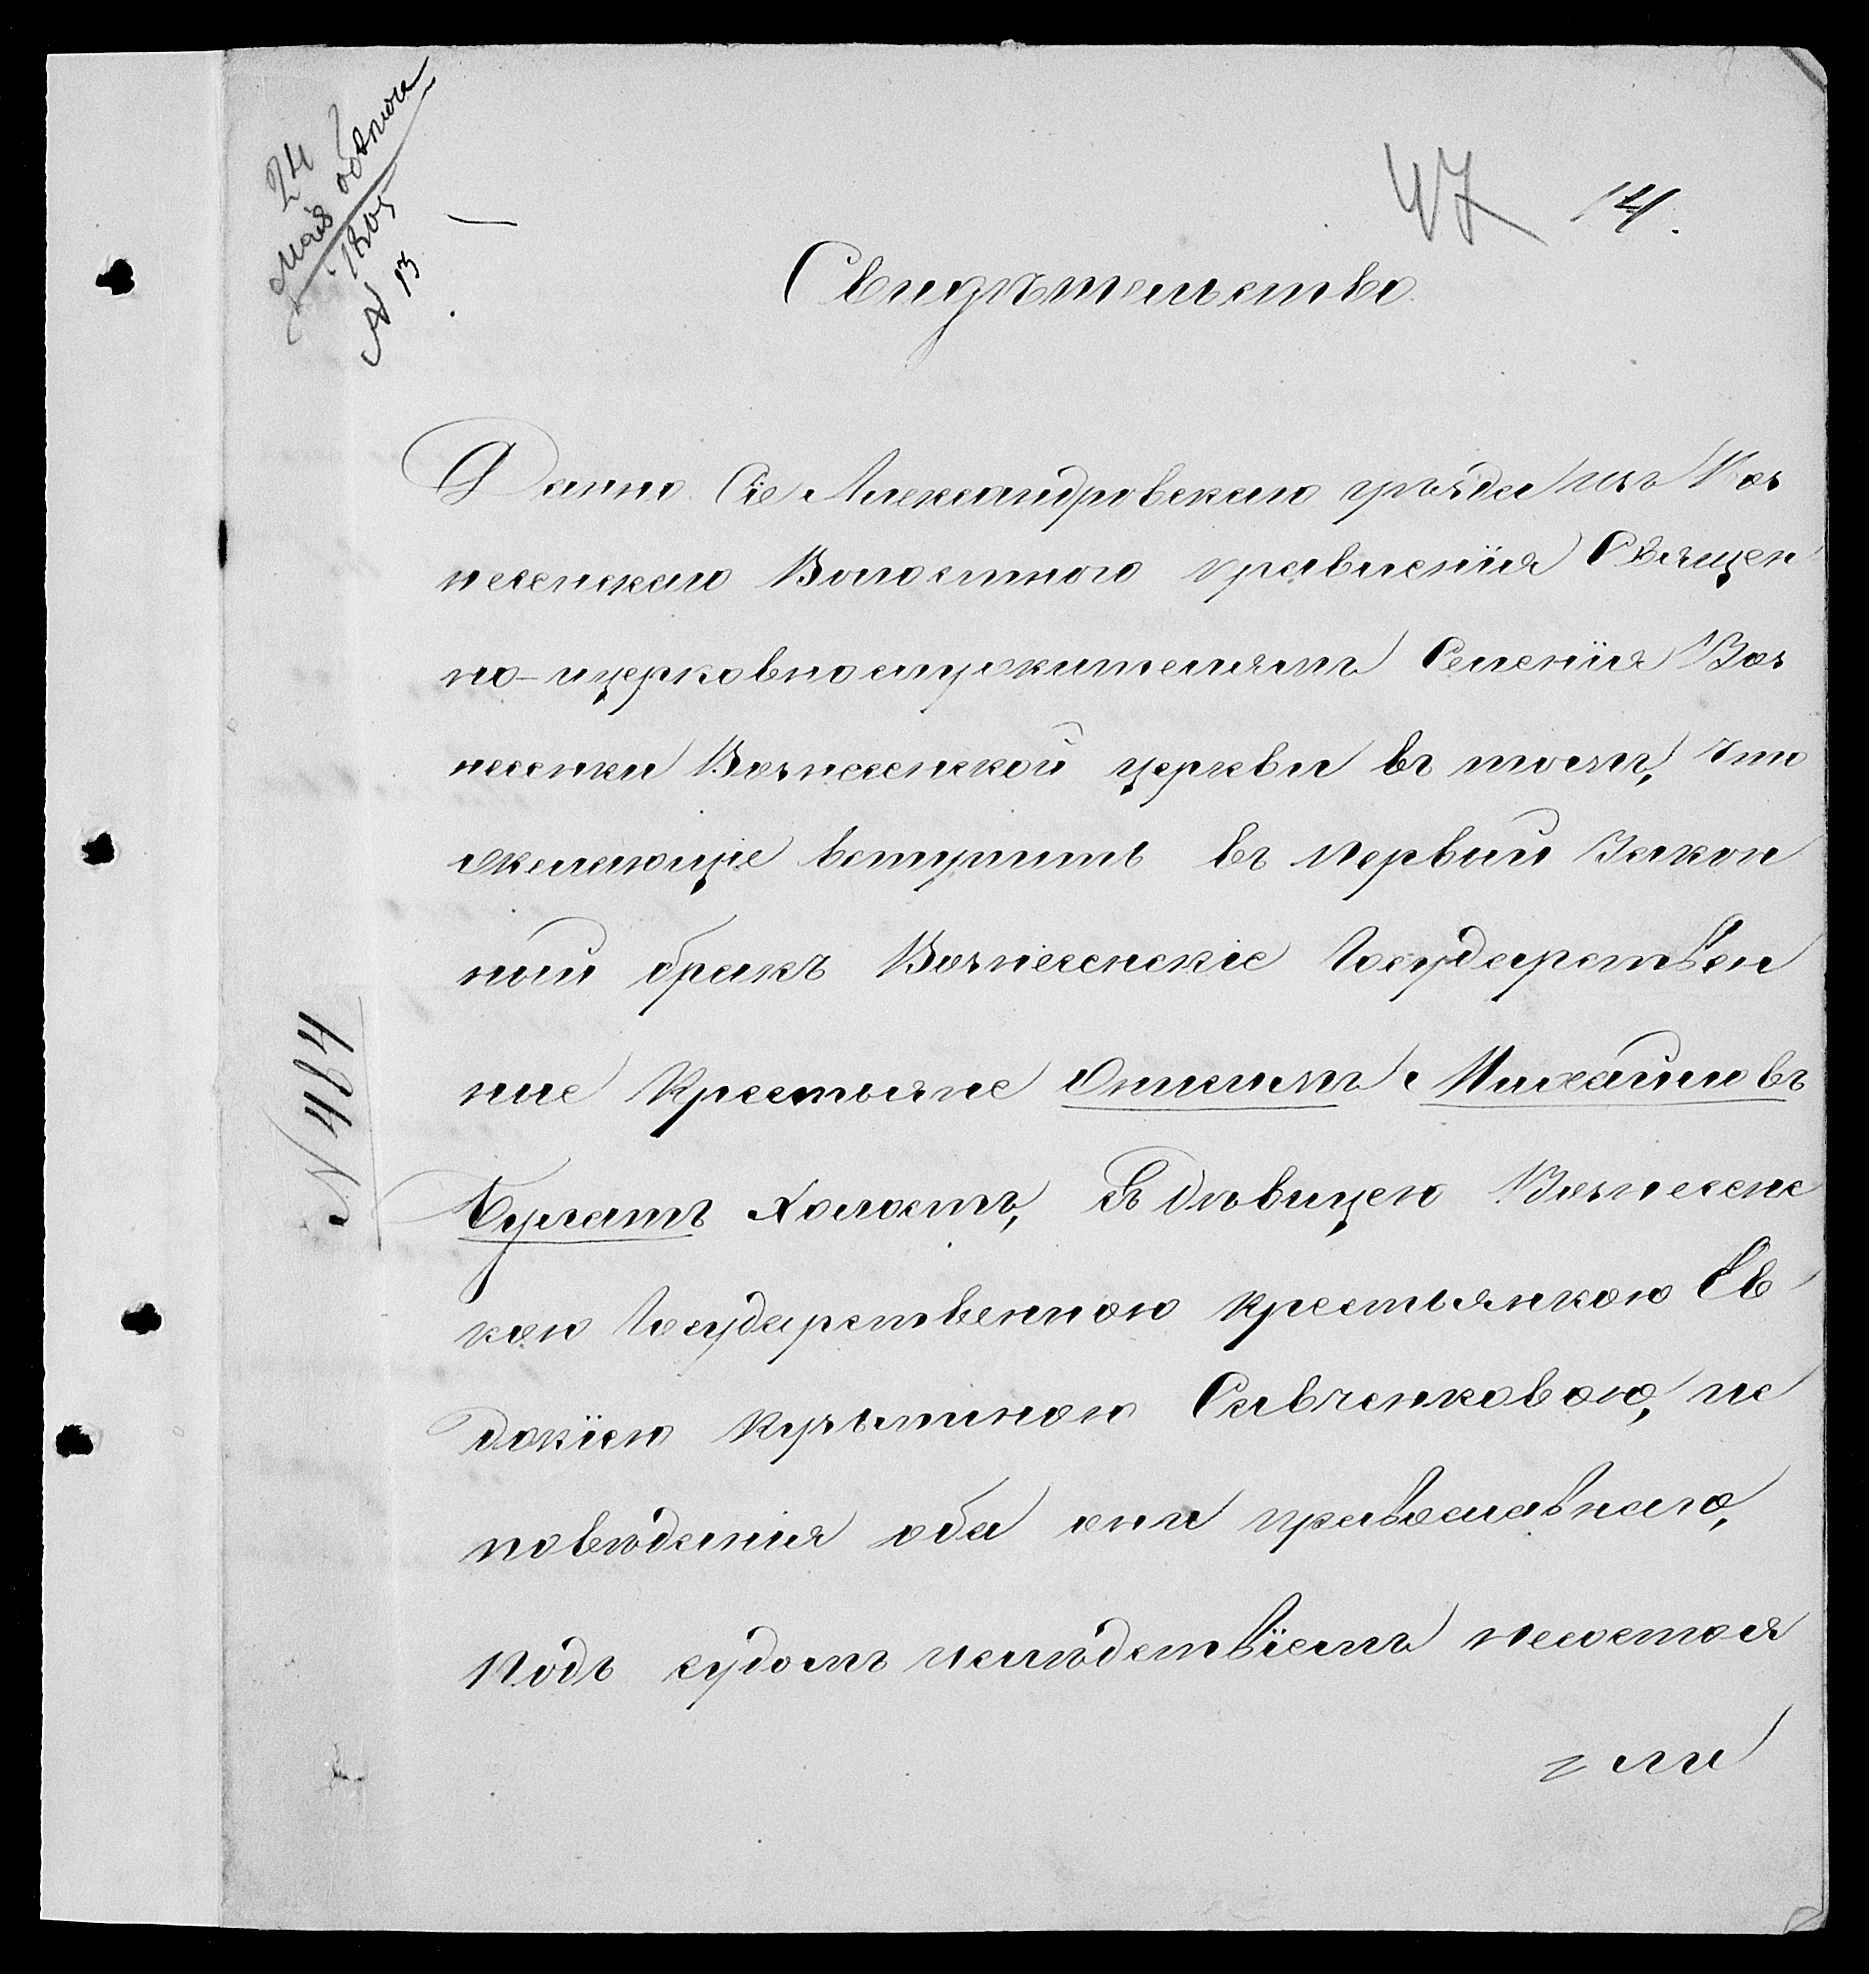 24
мая
N 13
47 14.
Свидѣтельство.
Дано Сіе Александровскаго уѣзда изъ Воз
несенскаго Волостного правленія Священ
но-церковнослужителямъ Селенія Воз
несенки Вознесенской церкви въ томъ, что
желающіе вступить въ первый Закон
ный бракъ Вознесенскіе Государствен
ные Крестьяне Михайловъ
Булатъ Холостъ, съ Дѣвицею Вознесенс
кою Государственною крестьянкою Ев
докіею Кузьминою Савченковою, ис
повѣданія оба они православнаго,
подъ судомъ ислѣдствіемъ несостоя
ли
N 484